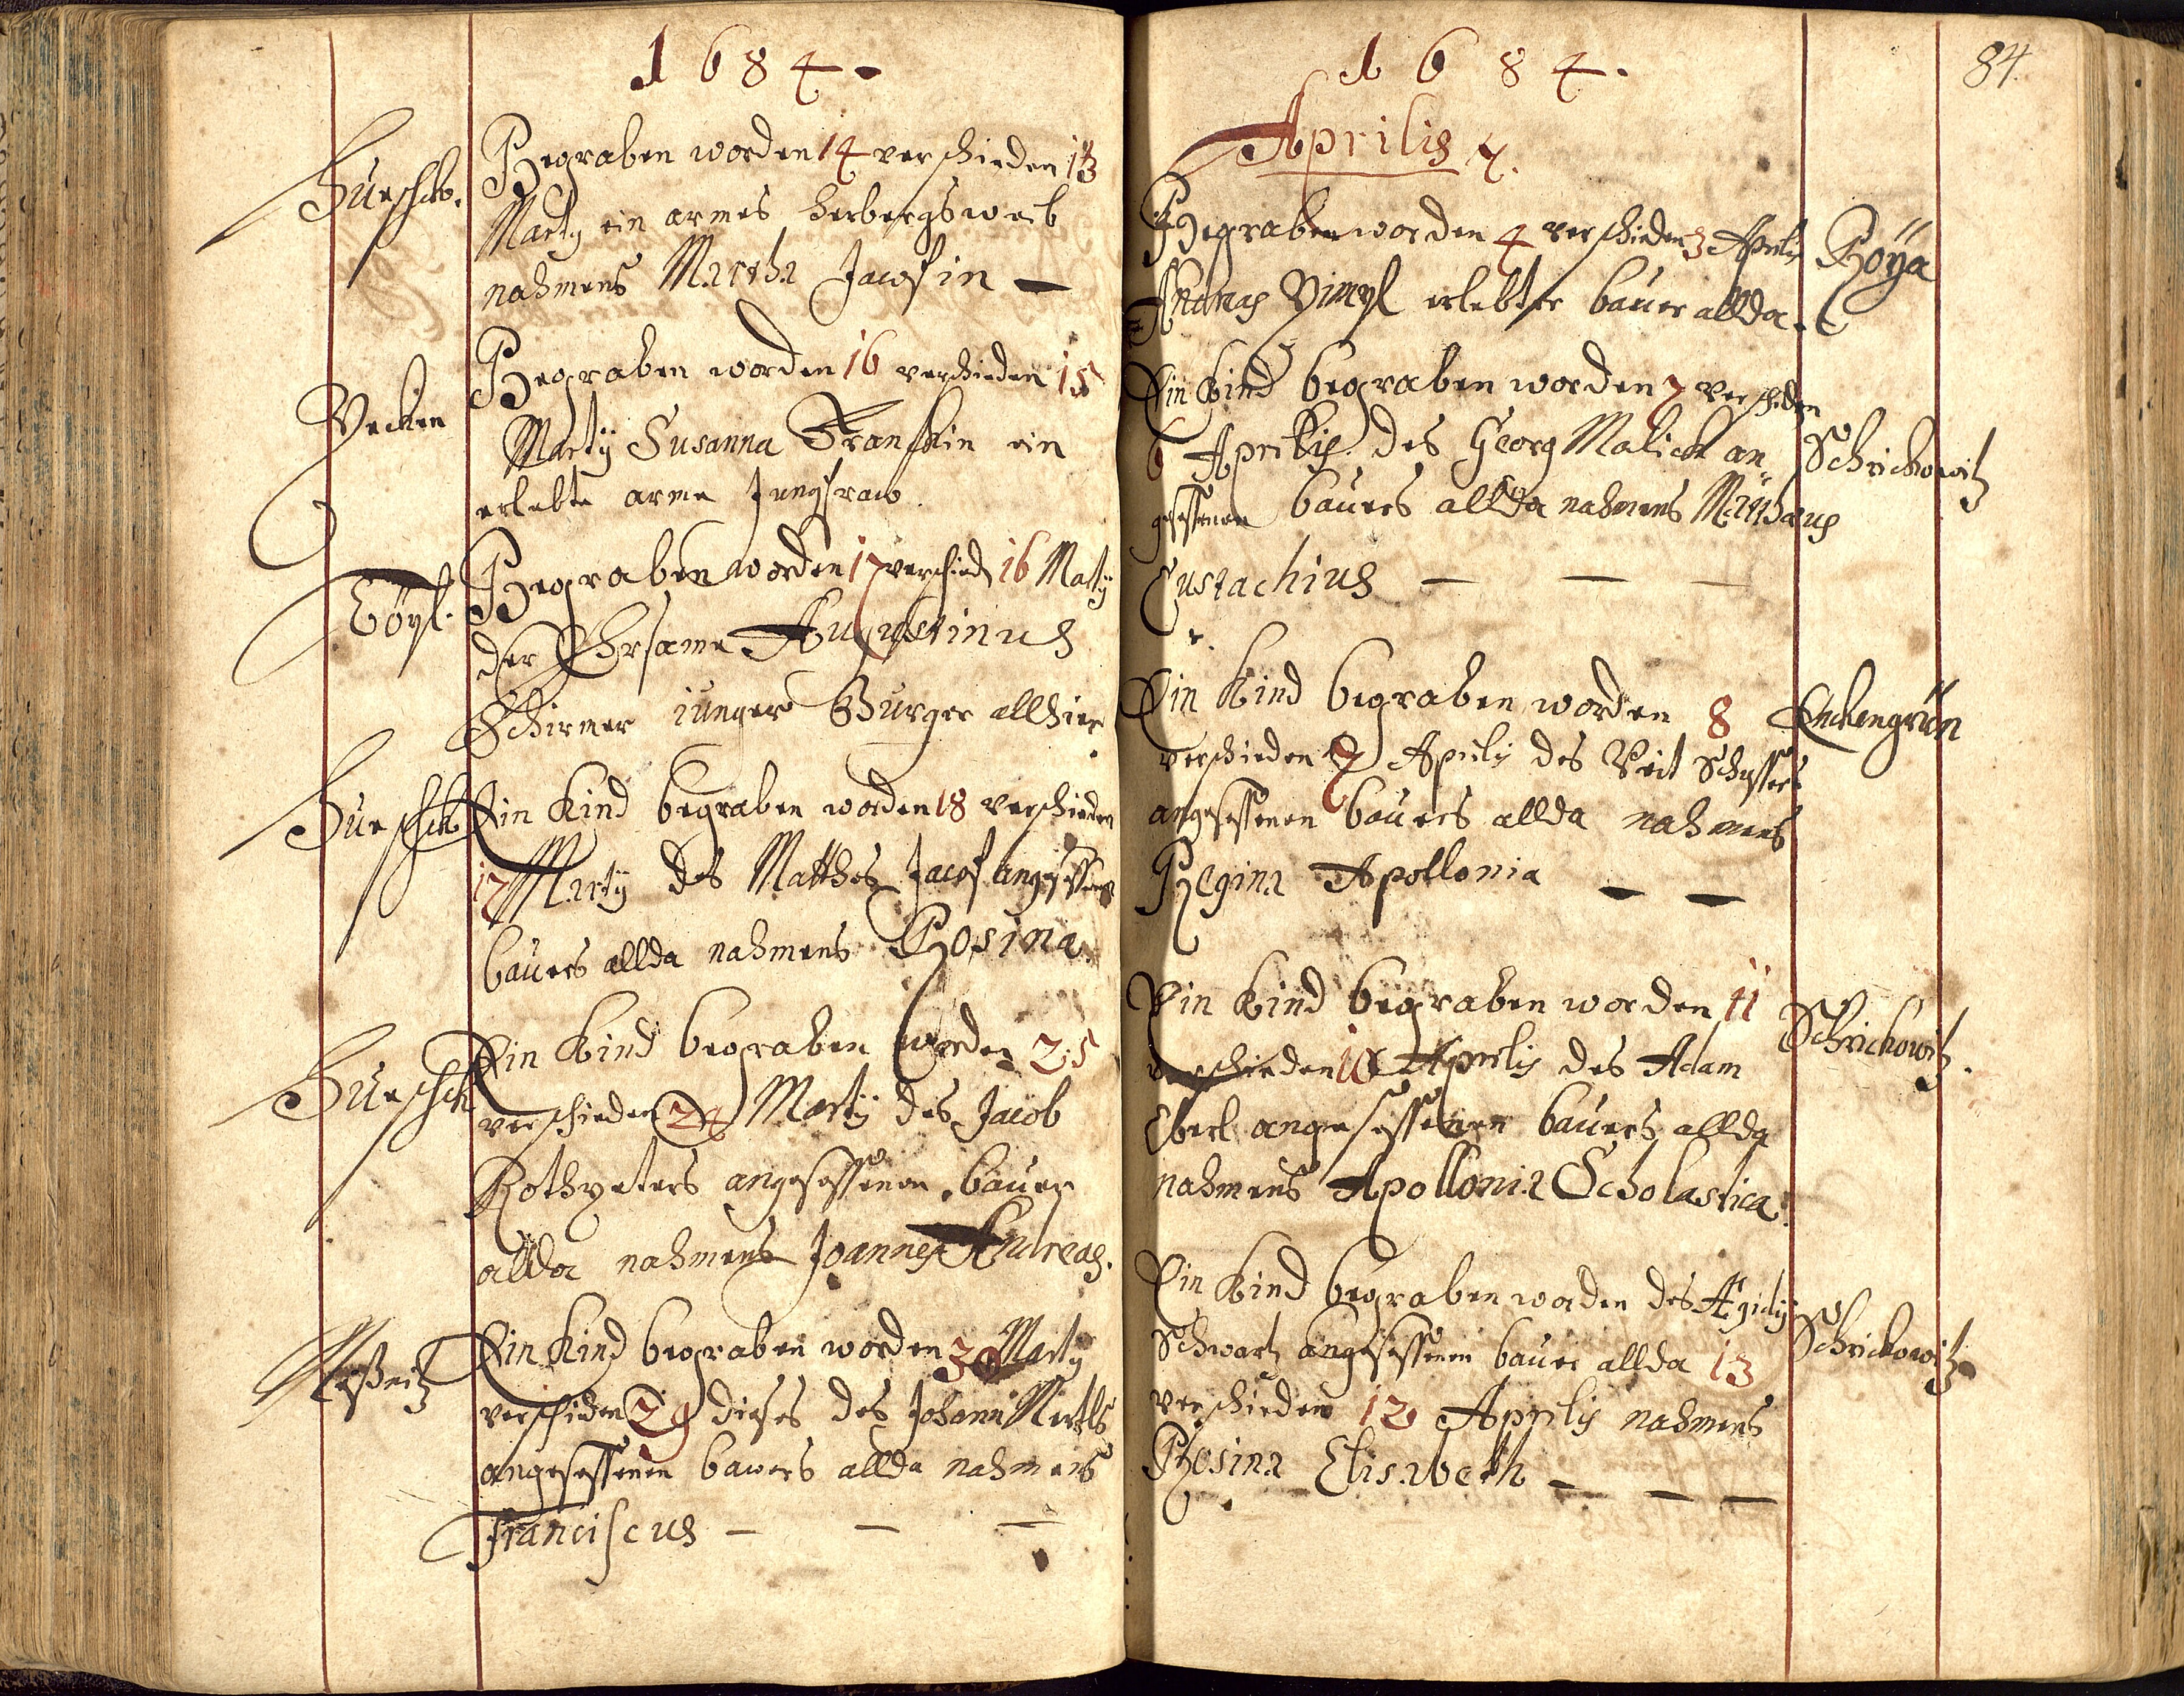 1684.
Hurschk.
Begraben worden 14 verschieden 13
Marty ein armes herbergsweib
nahmens Martha Jacosin —
Vecken
Begraben worden 16 verschieden 15
Martij Susanna Franskin ein
erlebte arme Jungfraw.
Töpl.
Begraben worden 17 verschied 16 Martij
der Ehrsame Augustinus
Schirmer iunger Burger allhier
Hurschk
Ein Kind begraben worden 18 verschieden
17 Martij des Matthes Jacos angesessenen
bauers allda nahmens Rosina.
Hurschk
Ein Kind begraben worden 25
verschieden 24 Martij des Jacob
Rothpeters angesessenen bauer
allda nahmens Joannes Andreas.
Ein Kind begraben worden 30 Marty
verschiden 29 dieses des Johann
angesessenen bawers allda nahmens
Franciscus — — —
84.
1684.
Aprilis
Begraben worden 4 verschieden 3 Aprilis
Andreas erlebter bauer allda.
Roÿa
Ein Kind begraben worden 7 verschieden
6 Aprilis des Georg Malick an¬
gesessenen bauers allda nahmens Matthaeus
Eustachius — — —
Schrickowitz
Ein Kind begraben worden 8
verschieden 7 Aprilis des Veit
angesessenen bauers allda nahmens
Regina Apollonia — —
Enckengrün
Ein Kind begraben worden 11
verschieden 10 Aprilis des Adam
Eberl angesessenen bauers allda
nahmens Apollonia Scholastica.
Schrickowitz.
Ein Kind begraben worden des Ægidij
Schwartz angesessenen bauer allda 13
verschieden 12 Aprilis nahmens
Rosina Elisabeth — — —
Schrickowitz